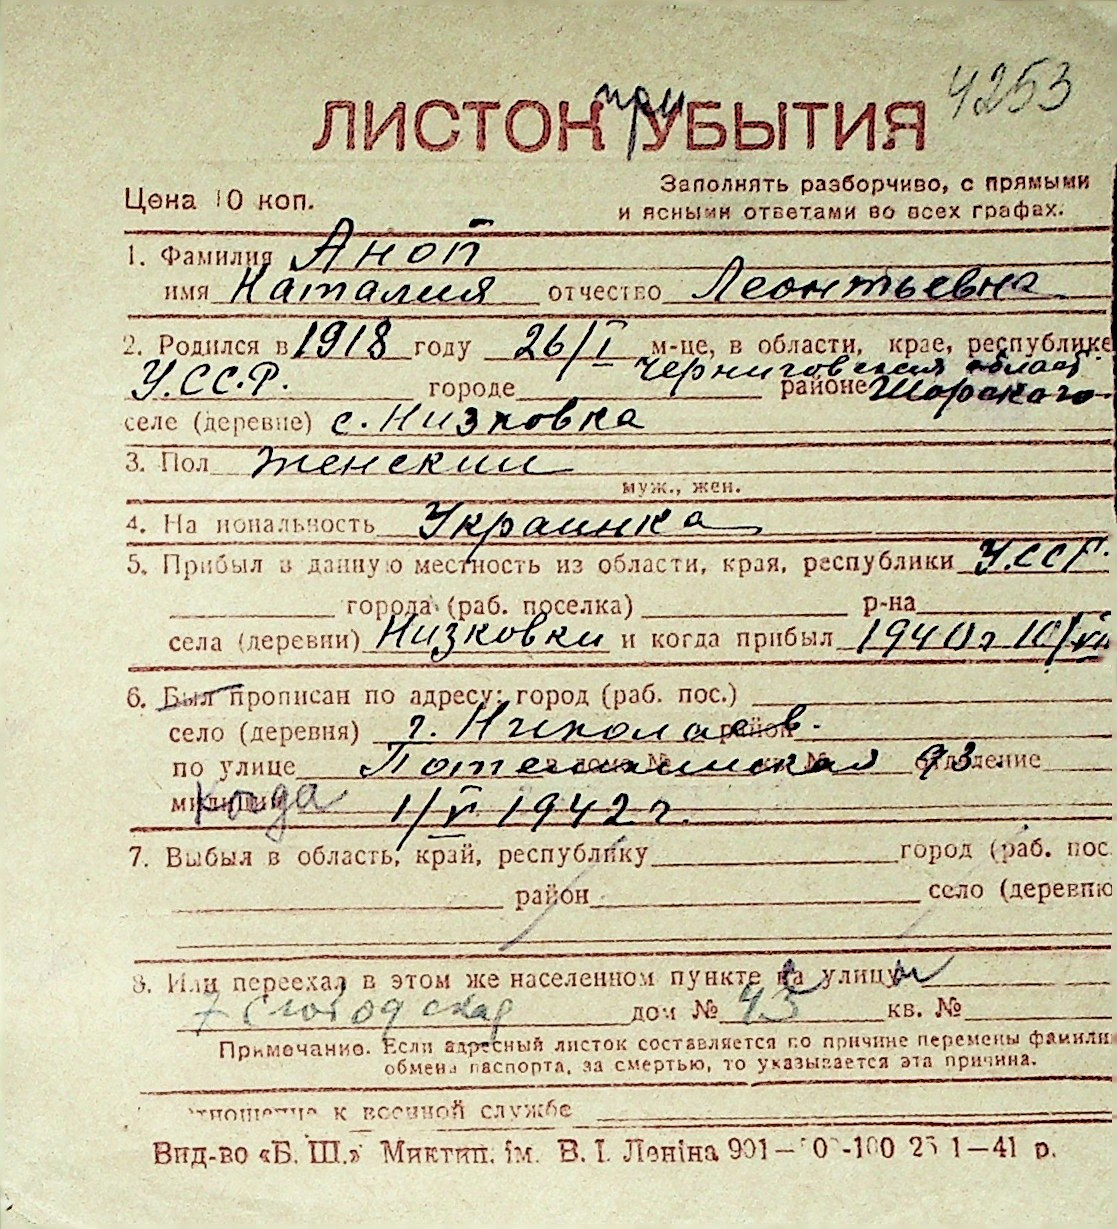 4253
ЛИСТОК при УБЫТИЯ
Цена 10 коп.
Заполнять разборчиво, с прямыми
и ясными ответами во всех графах.
1. Фамилия Аноп
имя Наталия отчество Леонтьевна
2. Родился в 1918 году 26/I м-це, в области, крае, республике
У.С.С.Р. городе Черниговская област районе Шорского
селе (деревне) с. Низковка
3. Пол женский
муж., жен.
4. На иональность Украинка
5. Прибыл в данную местность из области, края, республики У.ССР
города (раб. поселка) р-на
села (деревни) Низковки и когда прибыл 1940 г 10/VII
6. Был прописан по адресу: город (раб. пос.)
село (деревня) г. Николаев. район
по улице Потемкинская 93. отделение
милиции Когда 1/V 1942 г.
7. Выбыл в область, край, республику город (раб. пос.
район село (деревню
8. Или переехал в этом же населенном пункте на улицу
7 Слободская дом № 43 кв. №
Примечание. Если адресный листок составляется по причине перемены фамили
обмена паспорта, за смертью, то указывается эта причина.
тношение к военной службе
Вид-во «Б. Ш.» Миктип. ім. В. І. Леніна 901— 1—41 р.